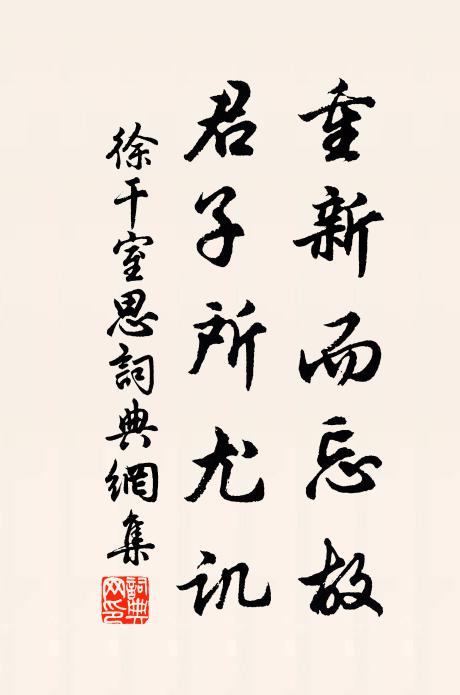 重新而忘故
君子所尤讥
徐干室思詞典網集
詞典网印